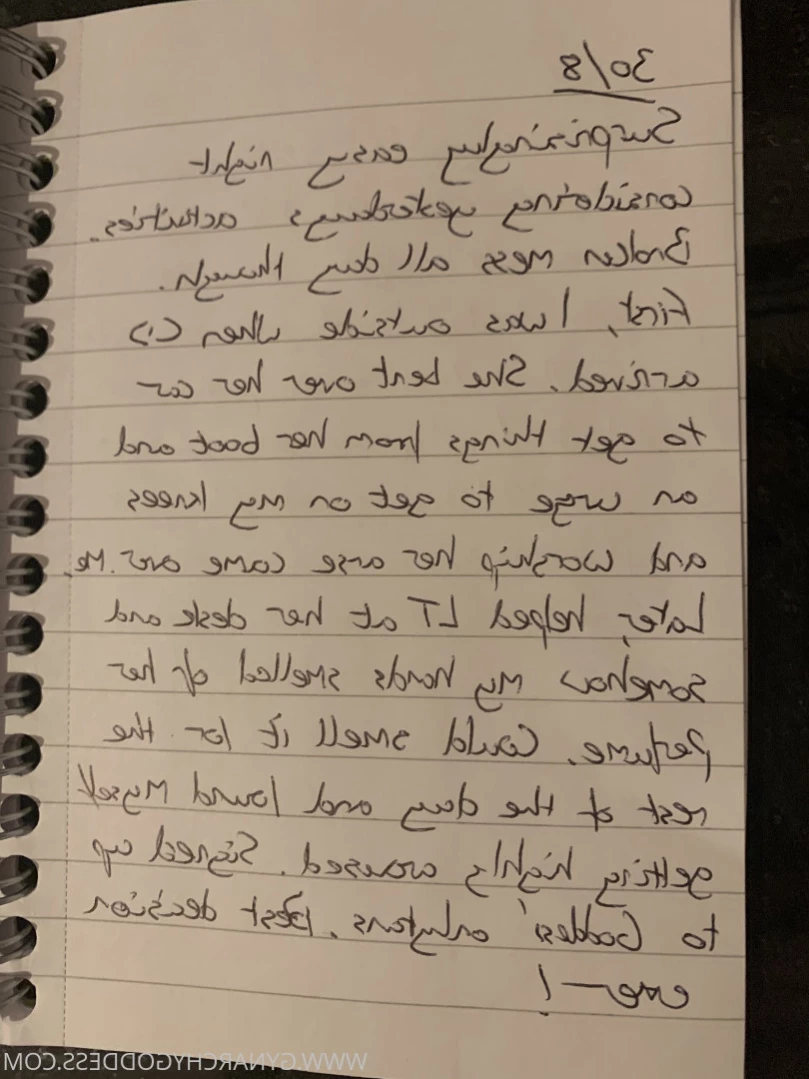 30/8
Surprisingly easy night
considering yesterdays activities.
Broken mess all day though.
First, I was outside when
arrived. She bent over her car
to get things from her boot and
an urge to get on my knees
and worship her arse came over me.
Later, helped LT at her desk and
somehow my hands smelled of her
perfume. Could smell it for the
rest of the day and found myself
getting highly aroused. Signed up
to Goddess' onlyfans. Best decision
ever!
WWW.GYNARCHYGODDESS.COM